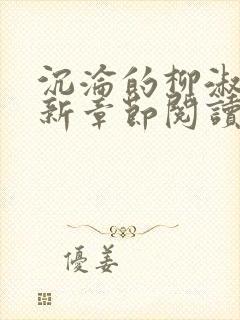 沉淪的柳淑
新章節閱讀
優姜